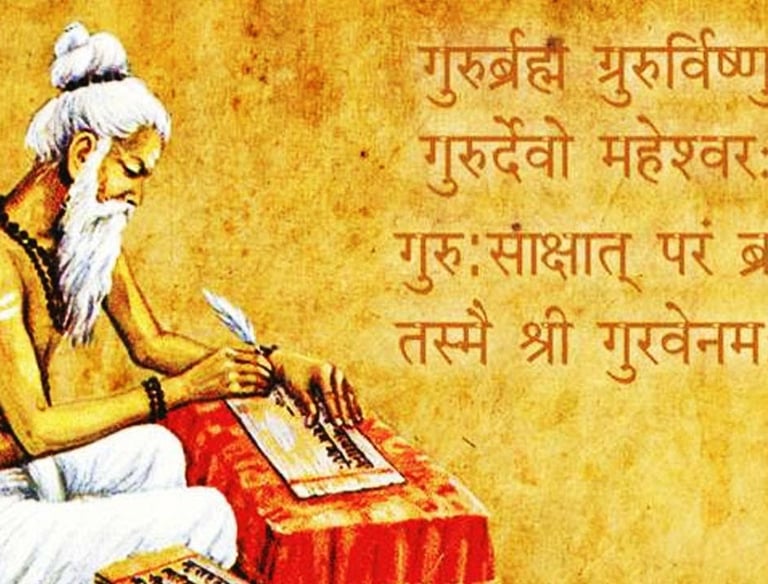 गुरुर्ब्रह्म ग्रुरुर्विष्णु
गुरुर्देवो महेश्वर:
गुरु:साक्षात् परं ब्र
तस्मै श्री गुरवेनम: